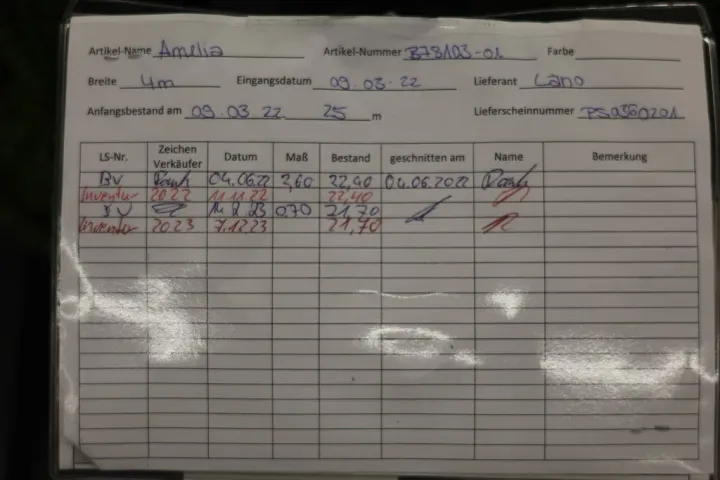 Artikel-Name Amelia Artikel-Nummer B78103-01 Farbe
Breite 4m Eingangsdatum 09.03.22 Lieferant Lano
Anfangsbestand am 09.03.22 25 m Lieferscheinnummer PS0360201
LS-Nr. Zeichen Verkäufer Datum Maß Bestand geschnitten am Name Bemerkung
BV 04.06.22 2,60 22,40 04.06.2022
Inventur 2022 11.11.22 22,40
14 2 23 0,70 21,70
Inventur 2023 7.12.23 21,70